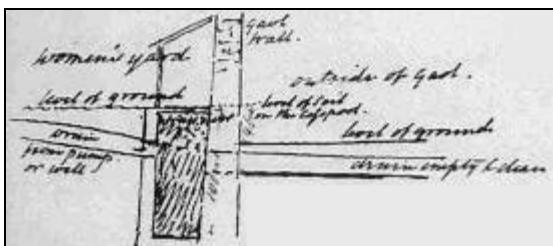 gaol
wall.
women's yard
outside of Gaol.
level of ground
level of soil
in the cesspool.
level of ground
drain
from pump
or wall
drain empty & clean